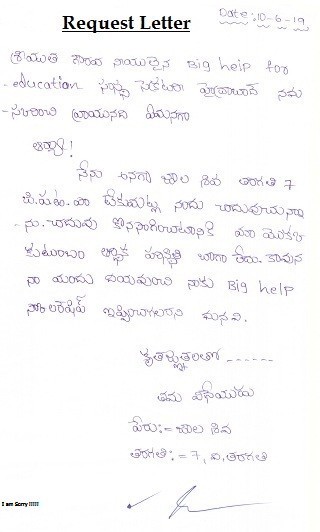 Request Letter
Date:10-6-19
శ్రీయుత గౌరవ నాయులైన Big help for
-education సంస్థ సెకటరీ హైద్రాబాద్ నమ
-స్కరించి వ్రాయునది ఏమనగా
ఆర్యా!
నేను అనగా చాల శివ తరగతి 7
నందు చదువుచున్నా
-ను. చదువు కొనసాగించుటానికి మా యొక్క
కుటుంబం ఆర్థిక పరిస్థితి బాగా లేదు. కావున
నా యందు దయవుంచి నాకు Big help
స్కాలర్షిప్ ఇప్పించగలరని మనవి.
కృతజ్ఞతలతో ------
తమ విధేయుడు
పేరు:= చాల శివ
తరగతి:= 7, వ, తరగతి
I am Sorry !!!!!